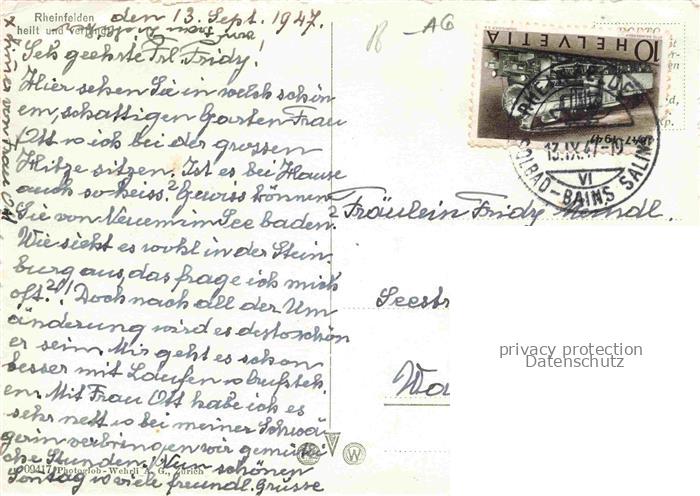 Rheinfelden
heilt und verjüngt
den 13. Sept. 1947.
Seh geehrte Frl Fridy!
Hier sehen Sie in welch schön
em, schattigen Garten Frau
Ott u ich bei der grossen
Hitze sitzen. Ist es bei Hause
auch so heiss.? Gewiss können
Sie von Neuem im See baden.?
Wie sieht es wohl in der Stein
burg aus, das frage ich mich
oft.?! Doch nach all der Um
änderung wird es desto schön
er sein. Mir geht es schon
besser mit Laufen u aufsteh
en. Mit Frau Ott habe ich es
sehr nett u bei meiner Schwä
gerin verbringen wir gemütli
che Stunden. Nun schönen
Sontag u viele freundl. Grüsse
009417 Photoglob-Wehrli A. G., Zürich
AG
10 HELVETIA
13.IX.47-19
VI
SOLBAD-BAINS SALINS
Fräulein Fridy
Seestr
Wä
privacy protection
Datenschutz